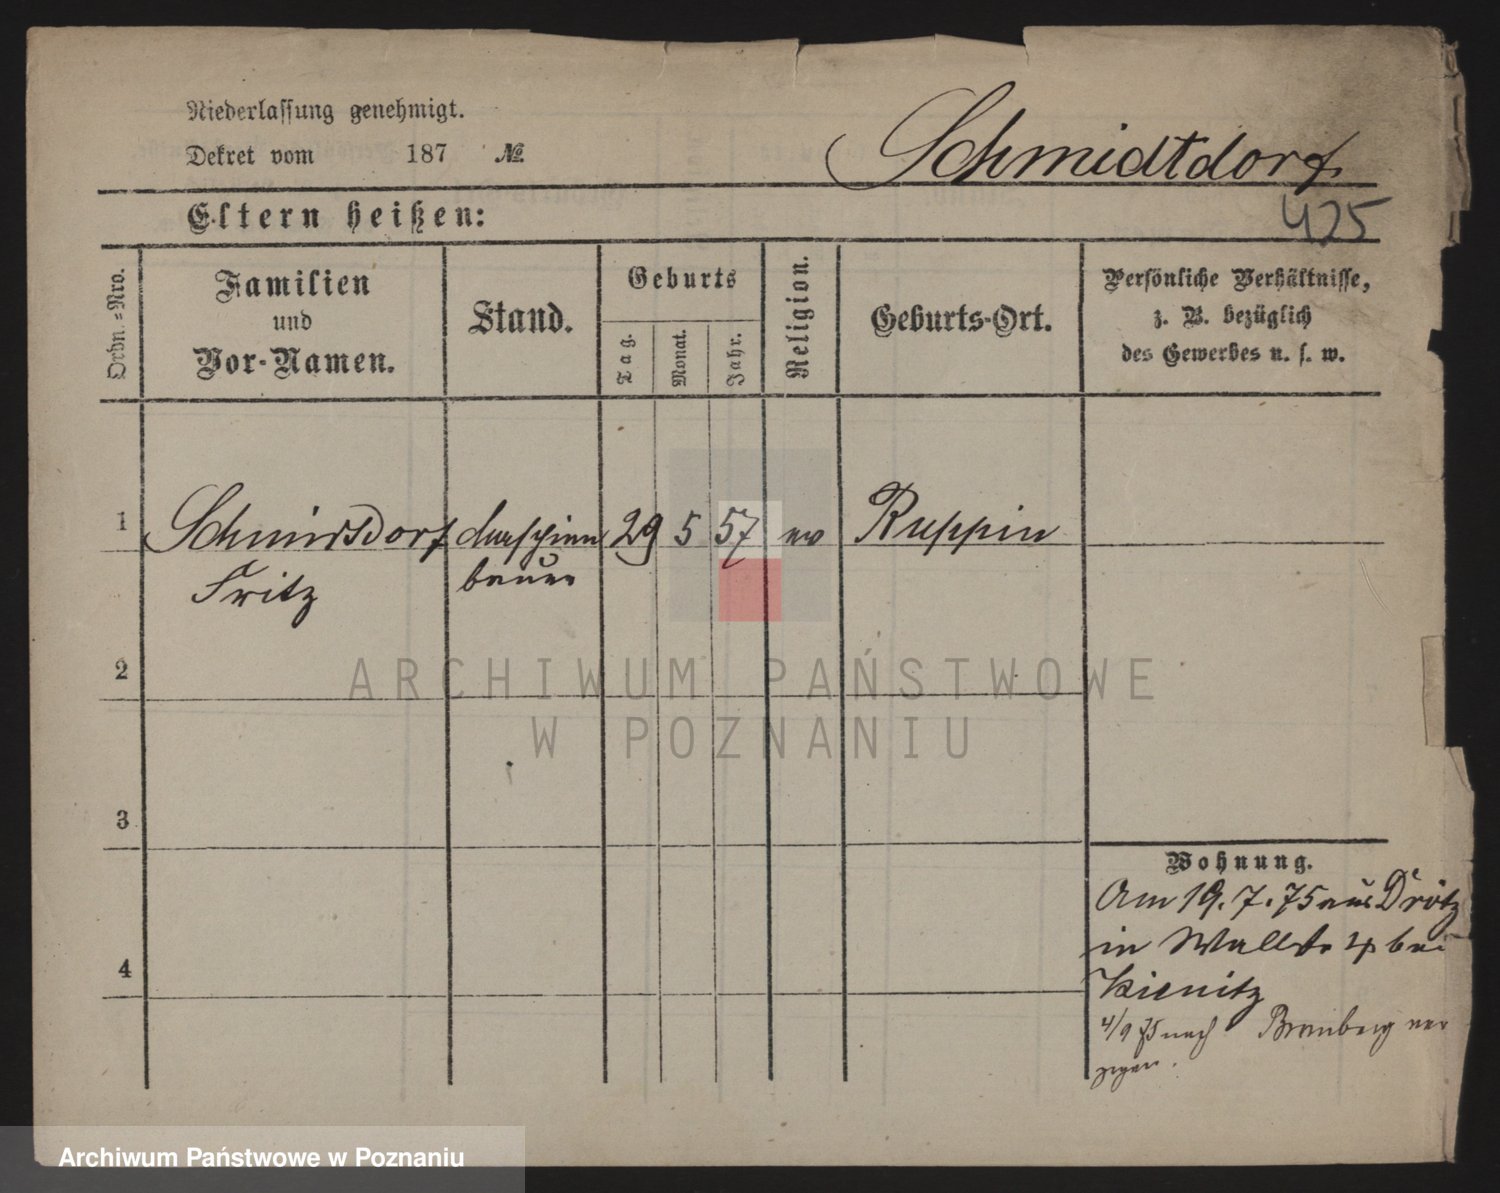 Niederlassung genehmigt.
Dekret vom 187 №
Schmidtdorf
Eltern heißen:
425
Ordn.-Nro.
Familien
und
Vor-Namen.
Stand.
Geburts
Tag.
Monat.
Jahr.
Religion.
Geburts-Ort.
Persönliche Verhältnisse,
z. B. bezüglich
des Gewerbes u. s. w.
1 Schmidtdorf Maschinen 29 5 57 ev Ruppin
Fritz bauer
2
ARCHIWUM PAŃSTWOWE
W POZNANIU
3
Wohnung.
Am 19.7.75 aus
in Wallstr 4 bei
4
Kienitz
4/9 75 nach Bromberg ver
zogen.
Archiwum Państwowe w Poznaniu